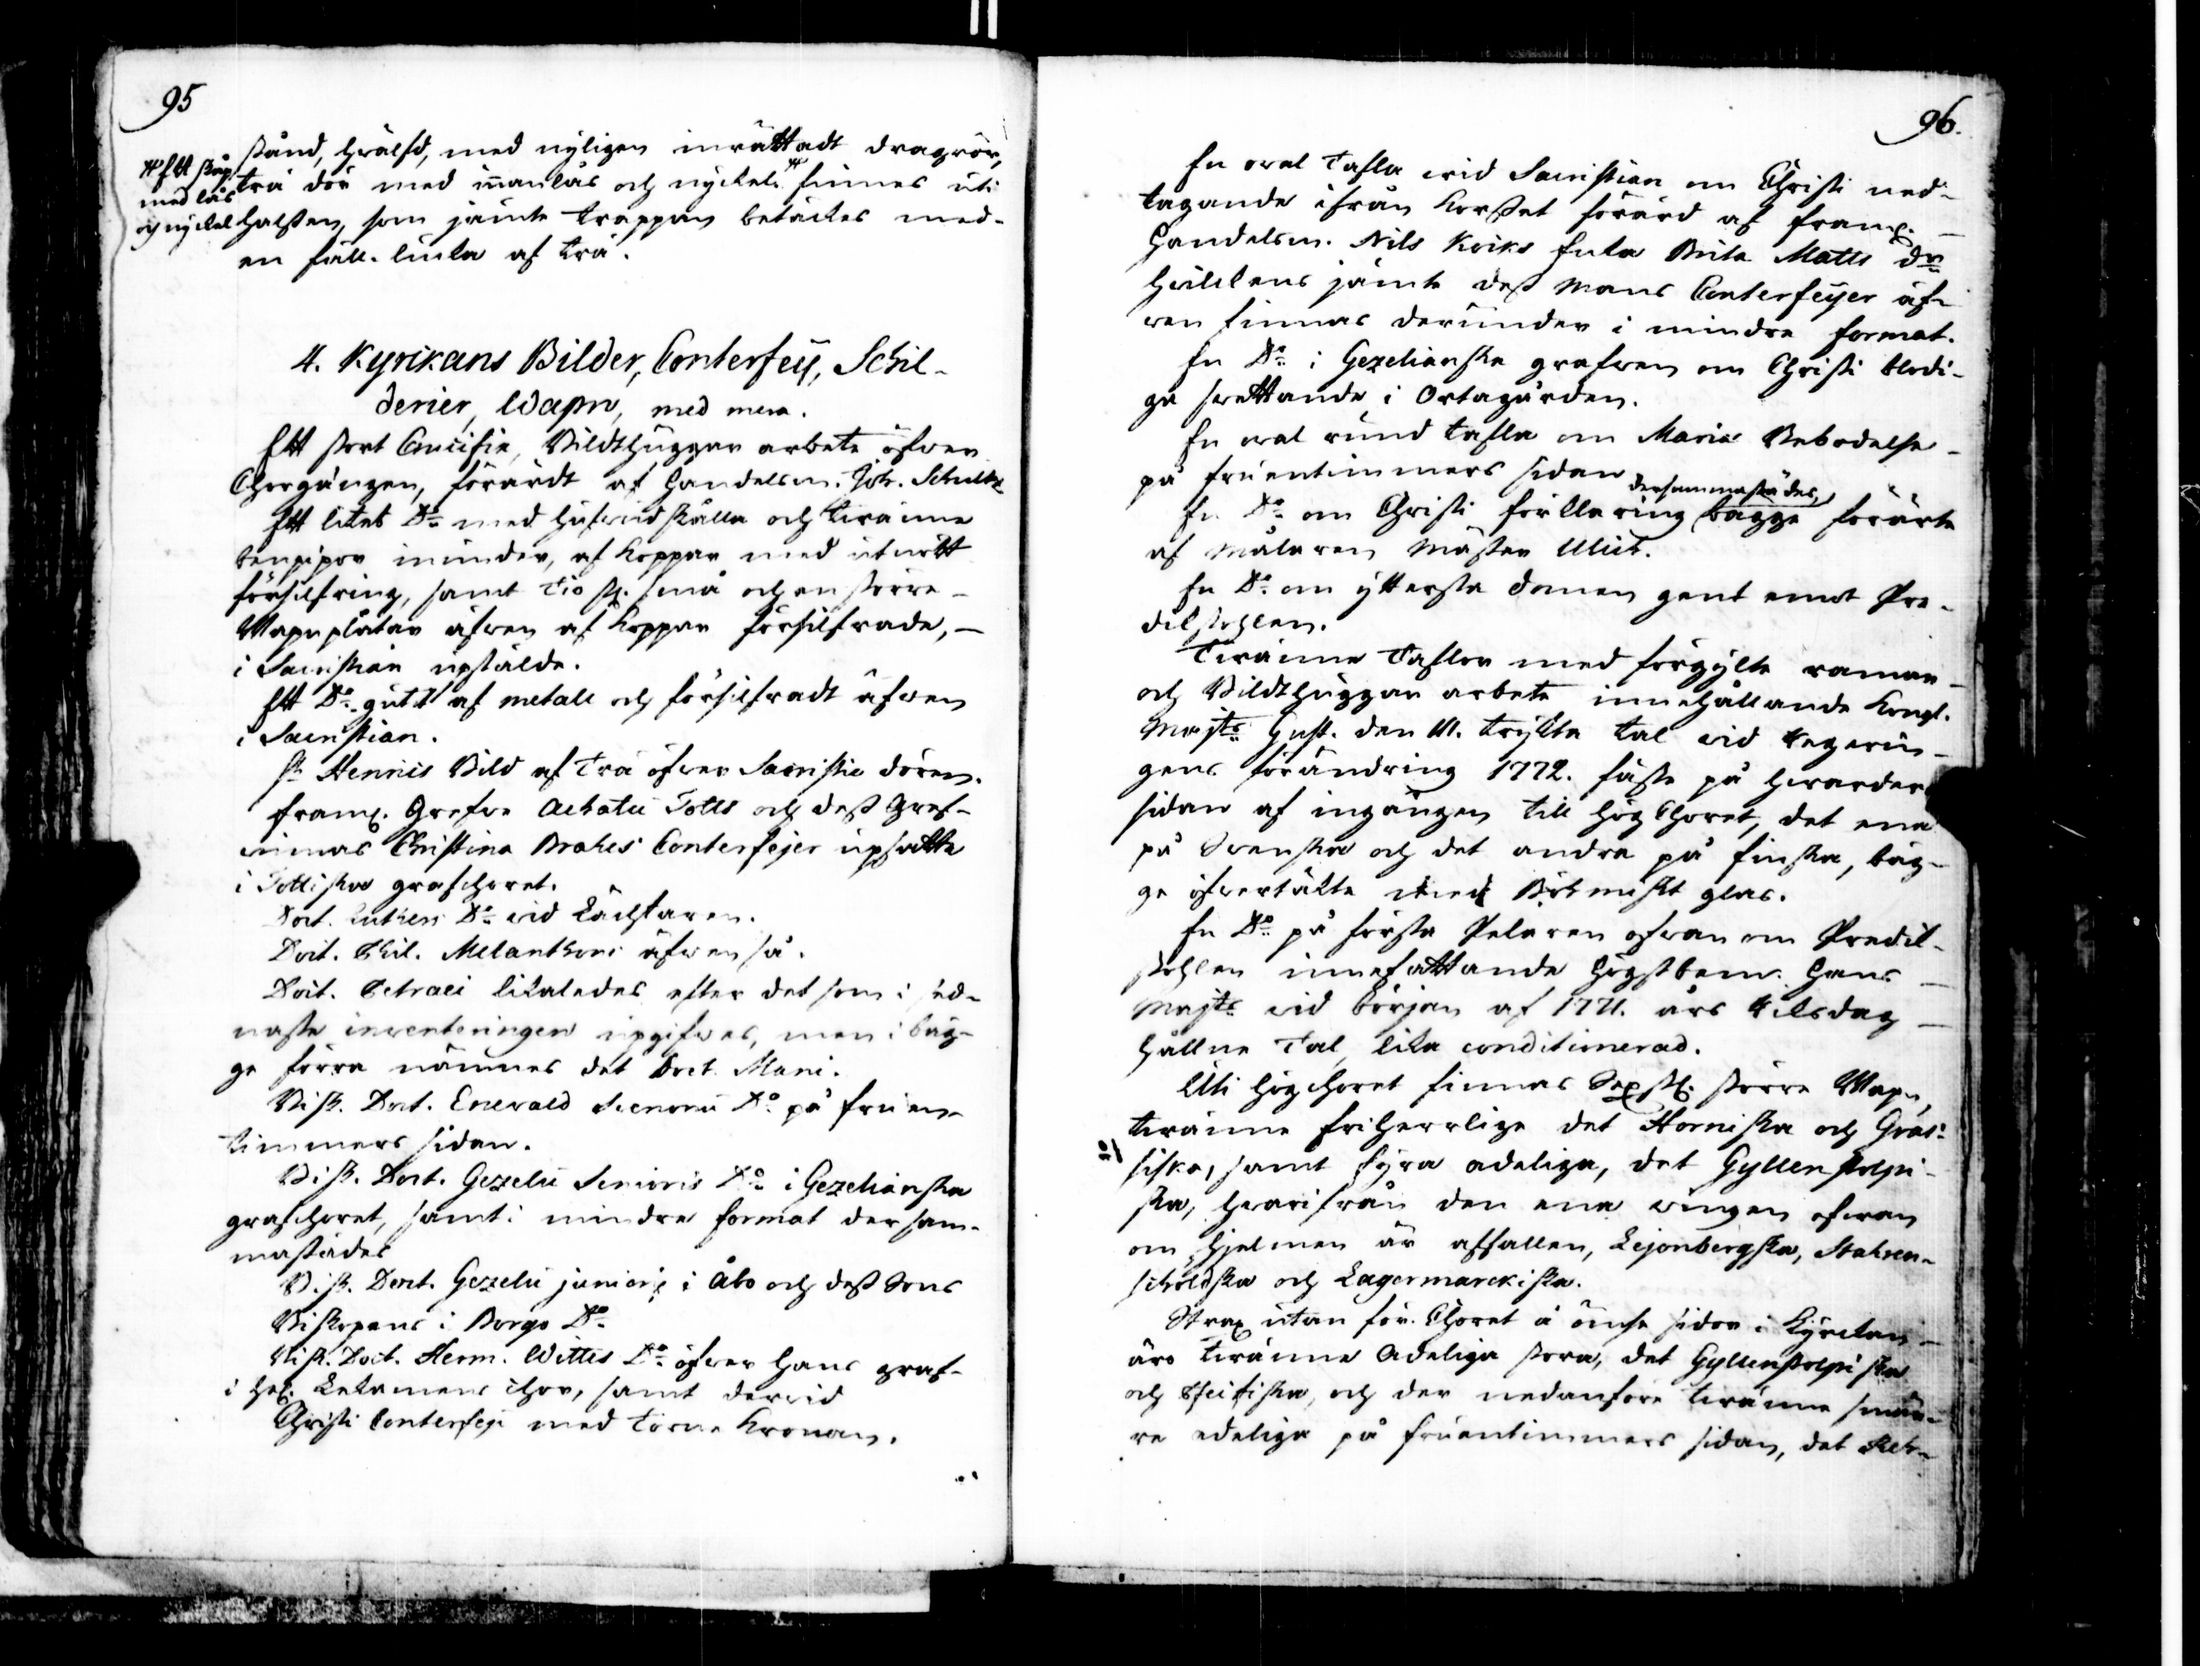 95
stånd, hwälfd, med nyligen inrättadt dragrör,
# Ett skåp
med lås
och nyckel
trä dör med innanlås och nyckel # finnes uti
halsten, som jämte trappan betäckes med
en fäll-lucka af trä.
4. Kyrkans Bilder, Conterfeÿ, Schil-
derier, Wapn, med mera.
Ett stort Crucifix, Bildthuggar arbete öfwer
Chorgången, förärdt af Handelsm. Joh. Schultz
Ett litet Do med hufwudskålla och twänne
benpipor inunder, af koppar med utnött
försilfring, samt tio st. små och en större
Wapnplåtar äfwen af koppar försilfrade,
i Sacristian upstälde.
Ett Do gutit af metall och försilfradt äfwen
i Sacristian.
St Henrics Bild af trä öfwer Sacristie dören.
Framl. Grefwe Achatii Totts och dess Gref-
winnas Christina Brahes Conterfejer upsatte
i Tottiska grafchoret.
Doct. Lutheri Do wid Läcktaren.
Doct. Phil. Melanthoni äfwen så.
Doct. Petraei likaledes efter det som i sed-
naste inventeringen upgifwes, men i båg-
ge förra nämnes det Doct. Mani.
Bisk. Doct. Enewald Svenonii Do på fruen-
timmers sidan.
Bisk. Doct. Gezelii Senioris Do i Gezelianska
grafchoret, samt i mindre format der sam-
mastädes
Bisk. Doct. Gezelii junioris i Åbo och dess Sons
Biskopens i Borgo Do
Bisk. Doct. Herm. Wittes Do öfwer hans graf
i Hel. Lekamens Chor, samt derwid
Christi Conterfej med törne Kronan.
96.
En oval Tafla wid Sacristian om Christi ned-
tagande ifrån Korsset förärd af framl.
Handelsm. Nils Kriks Enka Brita Matts dr
hwilkens jämte dess Mans Conterfeÿer äf-
wen finnas derunder i mindre format.
En Do i Gezelianska grafwen om Christi blodi-
ga swettande i Örtagården.
En oval rund tafla om Mariæ Bebodelse
på fruentimmers sidan
dersammastädes,
En Do om Christi förklaring bägge förärte
af Målaren Mäster Ulich.
En Do om yttersta domen gent emot Pre-
dikstohlen.
Twänne Taflor med förgylte ramar
och Bildthuggar arbete innehållande Kongl.
Majts Gust. den III. trykta tal wid Regerin-
gens förändring 1772. fäste på hwardera
sidan af ingången till Hög Choret, det ena
på Swenska och det andra på finska, båg-
ge öfwertäkte med Böhmiskt glas.
En Do på första Pelaren ofwan om Predik-
stohlen innefattande högstbem. Hans
Majts wid början af 1771. års Riksdag
hållne Tal, lika conditionerad.
Uti högchoret finnas Sex st. större Wapn,
twänne friherrlige det Horniska och Gras-
siska, samt fyra adeliga, det Gyllenstolpi-
ska, hwarifrån den ena wingen ofwan
om hjelmen är affallen, Lejonbergska, Stahlen-
schöldska och Lagermarckiska.
Strax utan för Choret å ömse sidor i Kyrckan
äro twänne Adeliga stora, det Gyllenstolpiska
och och der nedanföre twänne smär-
re adeliga på fruentimmers sidan, det Reh-